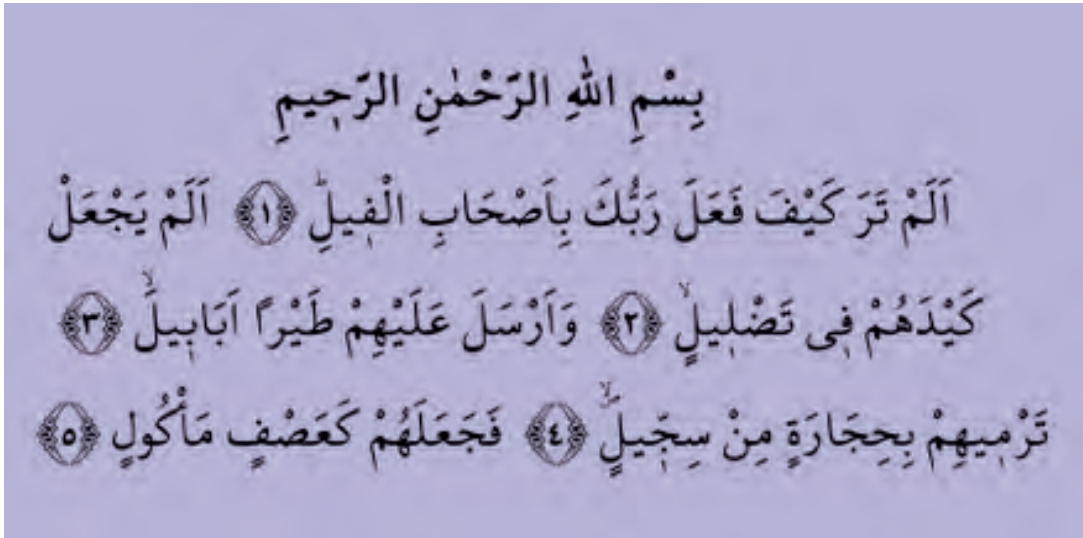 بِسْمِ اللّٰهِ الرَّحْمٰنِ الرَّح۪يمِ
اَلَمْ تَرَ كَيْفَ فَعَلَ رَبُّكَ بِاَصْحَابِ الْف۪يلِۜ ﴿١﴾ اَلَمْ يَجْعَلْ
كَيْدَهُمْ ف۪ى تَضْل۪يلٍۙ ﴿٢﴾ وَاَرْسَلَ عَلَيْهِمْ طَيْرًا اَبَاب۪يلَۙ ﴿٣﴾
تَرْم۪يهِمْ بِحِجَارَةٍ مِنْ سِجّ۪يلٍۙ ﴿٤﴾ فَجَعَلَهُمْ كَعَصْفٍ مَأْكُولٍ ﴿٥﴾